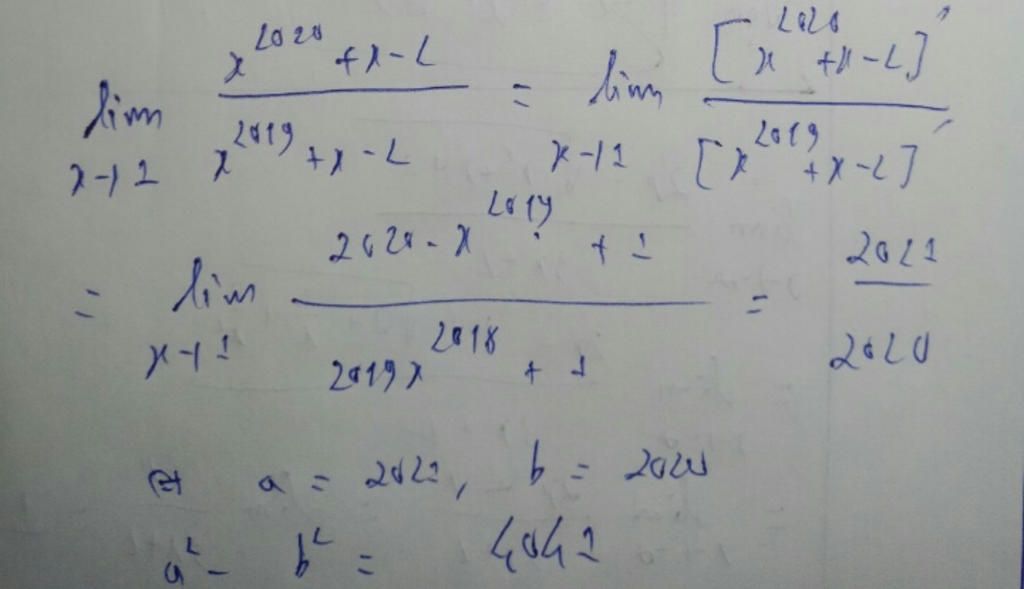 lim x→1 (x^2020 + x - 2) / (x^2019 + x - 2) = lim x→1 [x^2020 + x - 2]' / [x^2019 + x - 2]'
= lim x→1 (2020 · x^2019 + 1) / (2019x^2018 + 1) = 2021 / 2020
a = 2021, b = 2020
a² - b² = 4041